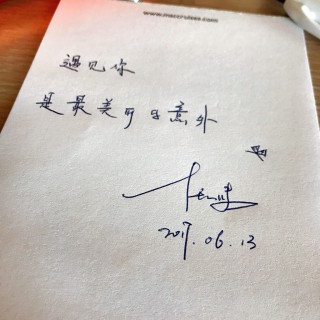 www.msccruises.com
遇见你
是最美的意外
2017.06.13